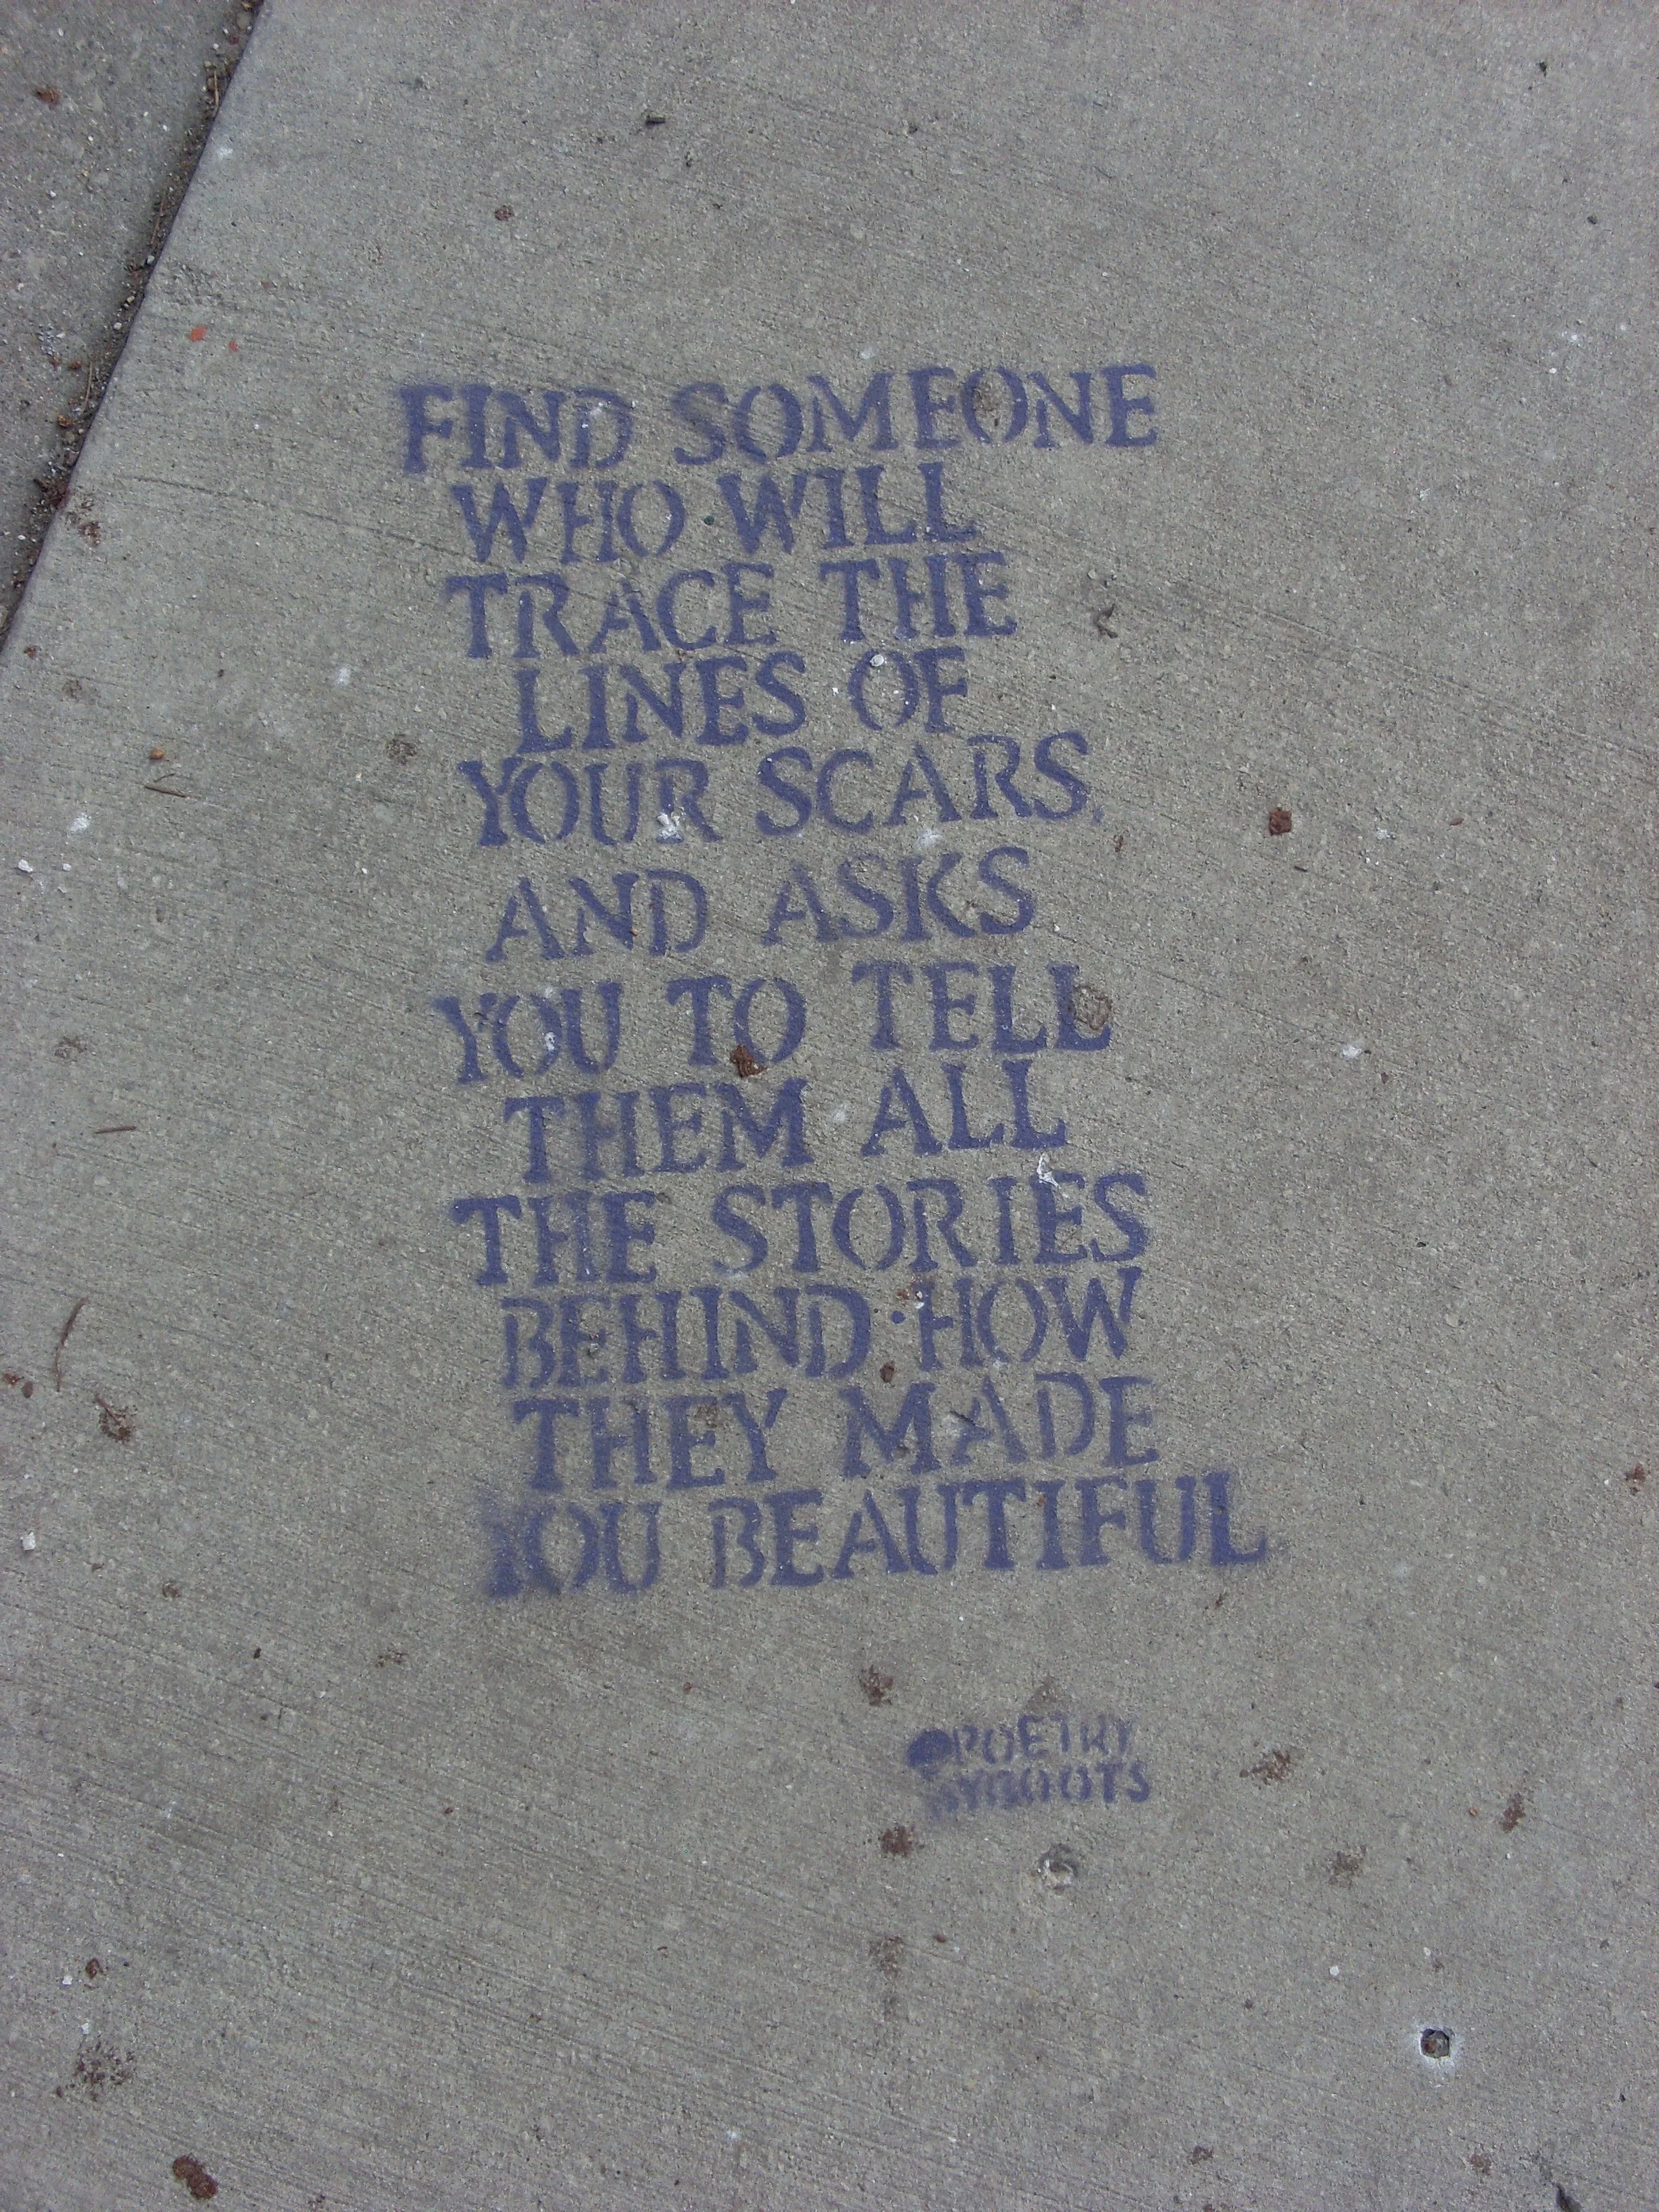 FIND SOMEONE
WHO WILL
TRACE THE
LINES OF
YOUR SCARS,
AND ASKS
YOU TO TELL
THEM ALL
THE STORIES
BEHIND HOW
THEY MADE
YOU BEAUTIFUL
@POETRY
BYBOOTS